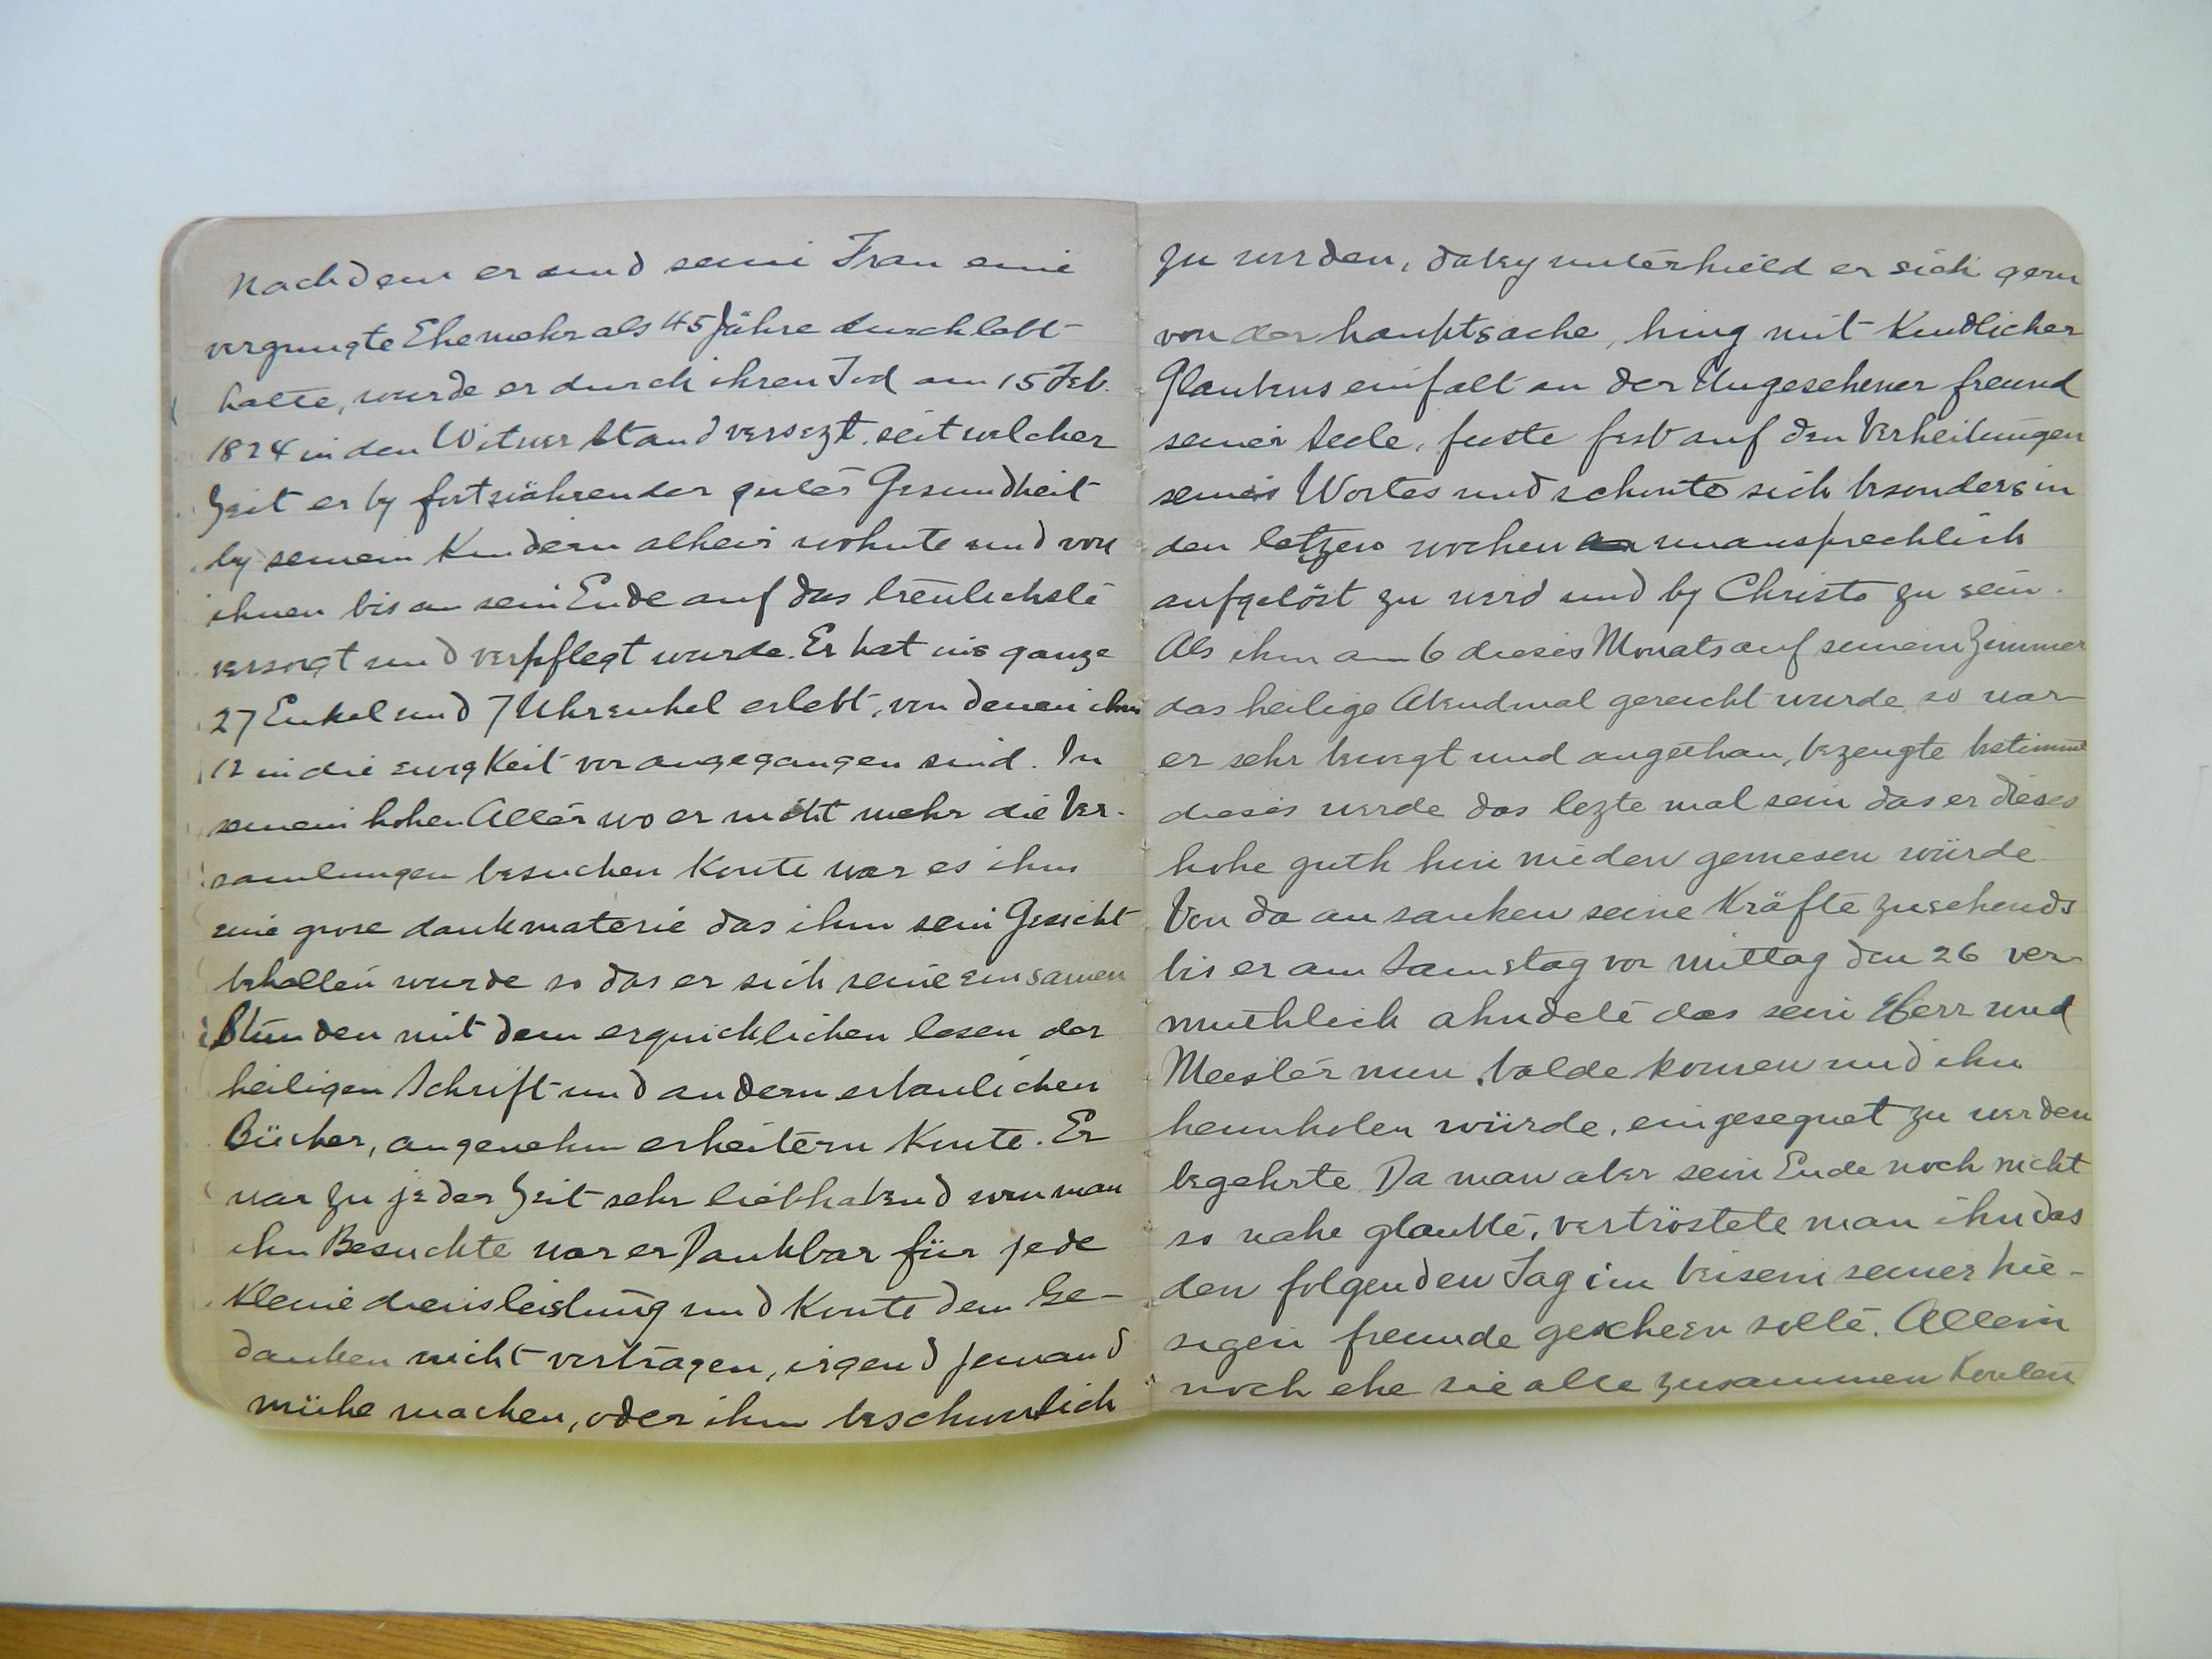 Nachdem er und seine Frau eine
vergnugte Ehe mehr als 45 Jahre durchlebt
hatte, wurde er durch ihren Tod am 15 Feb.
1824 in den Witwer Stand versezt. seit welcher
Zeit er by fortwährender guter Gesundheit
by seinem Kindern alhier wohnte und von
ihnen bis an sein Ende auf das treulichste
versorgt und verpflegt wurde. Er hat ins ganze
27 Enkel und 7 Uhrenkel erlebt, von denen ihm
12 in die ewigkeit vorangegangen sind. In
seinem hohen Alter wo er nicht mehr die Ver-
samlungen besuchen konte war es ihm
eine grose dankmaterie das ihm sein Gesicht
behalten wurde so das er sich seine einsamen
Stunden mit dem erquicklichen lesen der
heiligen Schrift und andern erbaulichen
Bücher, angenehm erheitern konte. Er
war zu jeder Zeit sehr liebhabend wen man
ihn Besuchte war er Dankbar für jede
kleine diensleistung und konte den Ge-
danken nicht vertragen, irgend jemand
mühe machen, oder ihm beschwerlich
zu werden, dabey unterhield er sich gern
von der hauptsache, hing mit kindlicher
Glaubens einfalt an der Ungesehener freund
seiner Seele, fuste fest auf den Verheisungen
seines Wortes und sehnte sich besonders in
den letzen wochen unaussprechlich
aufgelöst zu werd und by Christo zu sein.
Als ihm am 6 dieses Monats auf seinem Zimmer
das heilige Abendmal gereicht wurde so war
er sehr bewegt und angethan, bezeugte bestimmt
dieses werde das lezte mal sein das er dieses
hohe guth hin nieden geniesen würde
Von da an sanken seine Kräfte zusehends
bis er am Samstag vor mittag den 26 ver-
muthlich ahndete das sein Herr und
Meister nun balde komen und ihn
heimholen würde, eingesegnet zu werden
begehrte. Da man aber sein Ende noch nicht
so nahe glaubte, vertröstete man ihn das
den folgenden Tag im beisein seiner hie-
sigen freunde gescheen solte. Allein
noch ehe sie alle zusammen konten